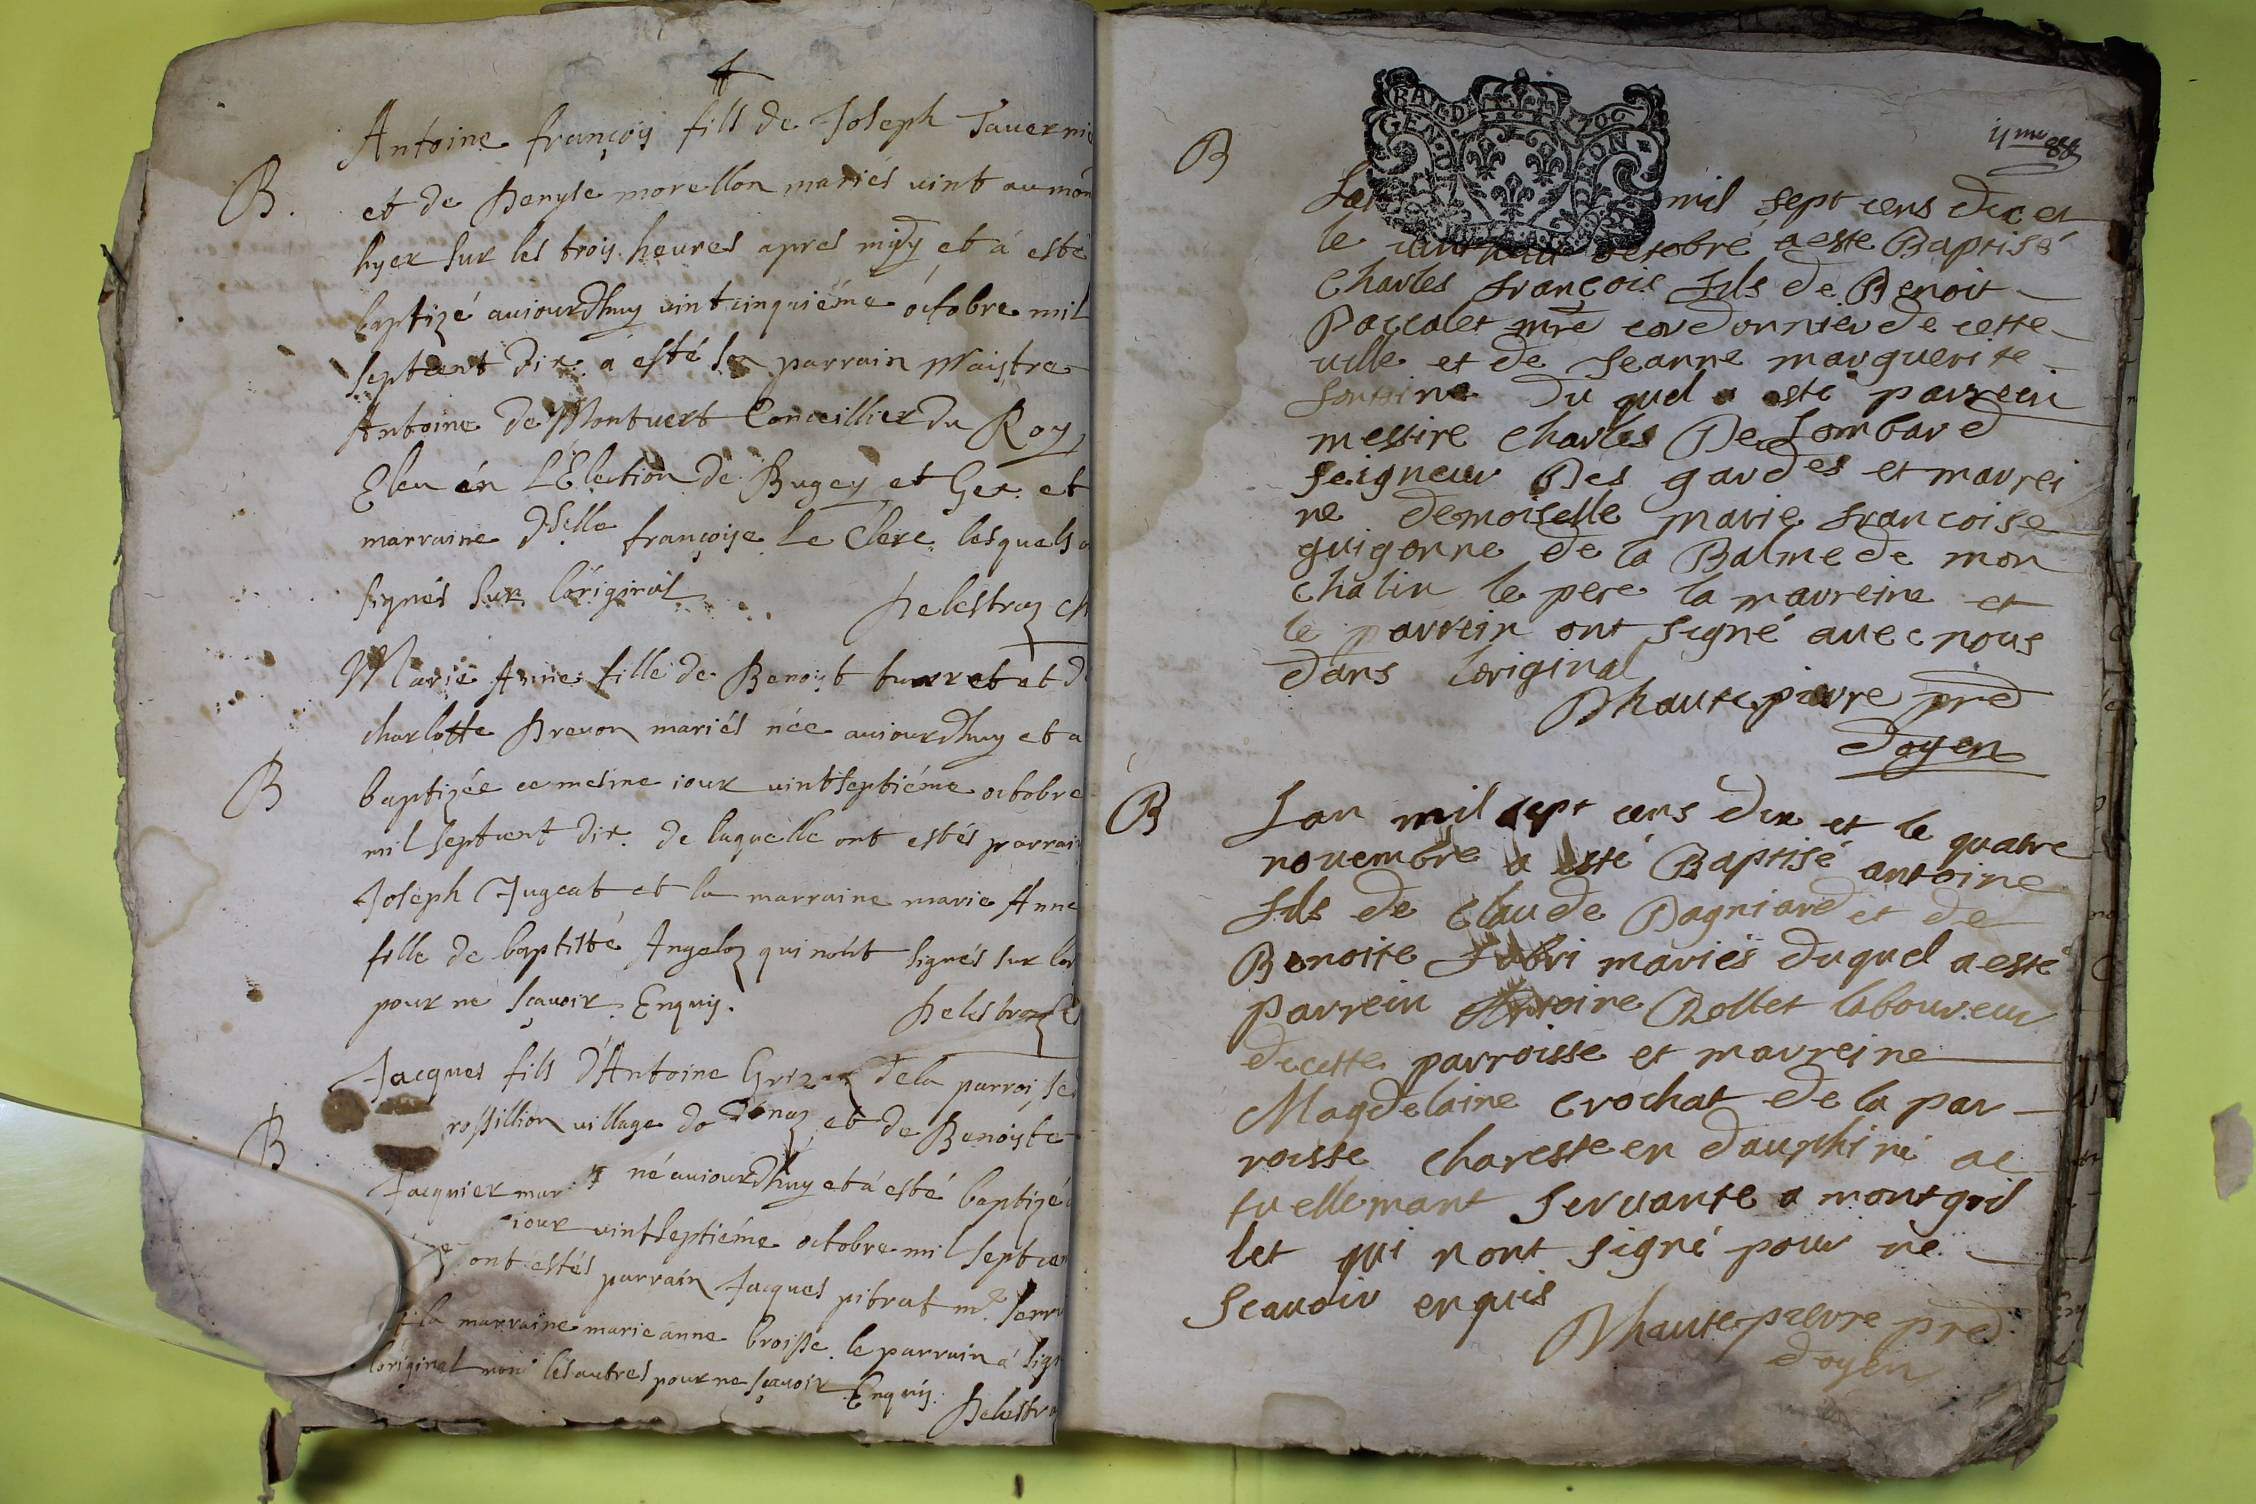 Antoine françoys fils de Joseph Tavernie
B.
et de Denyse morellon mariés vint au mon
hyer sur les trois heures apres midy et à esté
baptizé aujourdhuy vintcinquiéme óctobre mil
septcent dix. a esté son parrain Maistre
Antoine de Montvert Conceillier du Roy
Eleu én L'Élection de Bugey et Gex. et
marraine dselle françoise Le Clerc. lesquels
signés sur lóriginal
Delestraz
Marie Anne fille de Benoyt burret et d
charlotte Drevon mariés née aujourdhuy et a
B
baptizée ce mesme iour vintseptiéme octobre
mil septcent dix. de laquelle ont estés parrain
Joseph Jugeat et la marraine marie Anne
fille de baptisté Angeloz qui nónt signés sur lor
pour ne sçavoir. Enquis.
Delestraz
Jacques fils d'Antoine de la parroisse
B
rossillion village de et de Benoiste
Jacquier né aujourdhuy et à esté baptizé
iour vintseptiéme octobre mil septcen
ont estés parrain Jacques pitrat me. serru
la marraine marie anne broisse. le parrain á sign
lóriginal non les autres pour ne sçavoir Enquis.
Delestra
GEN. D 1706
B
Lan mil sept cens dix et
le octobre a esté Baptisé
Charles françois fils de Benoit
Paccalet mre cordonnier de cette
ville et de Jeanne marguerite
du quel a esté parrein
messire Charles De Lombard
seigneur Des gardes et marrei
ne demoiselle marie francoise
guigonne de la Balme de mon
chalin le pere la marreine et
le parrein ont signé avec nous
dans loriginal
Dhautepierre pred
doyen
B
Lan mil sept cens dix et le quatre
novembre a esté Baptisé antoine
fils de Claude Dagniard et de
Benoite fabri mariés duquel a esté
parrein Antoine Rollet laboureur
de cette parroisse et marreine
Magdelaine crochat de la par
roisse charesse en dauphiné ac
tuellemant servante a montgril
let qui nont signé pour ne
scavoir enquis
Dhautepierre pred
doyen